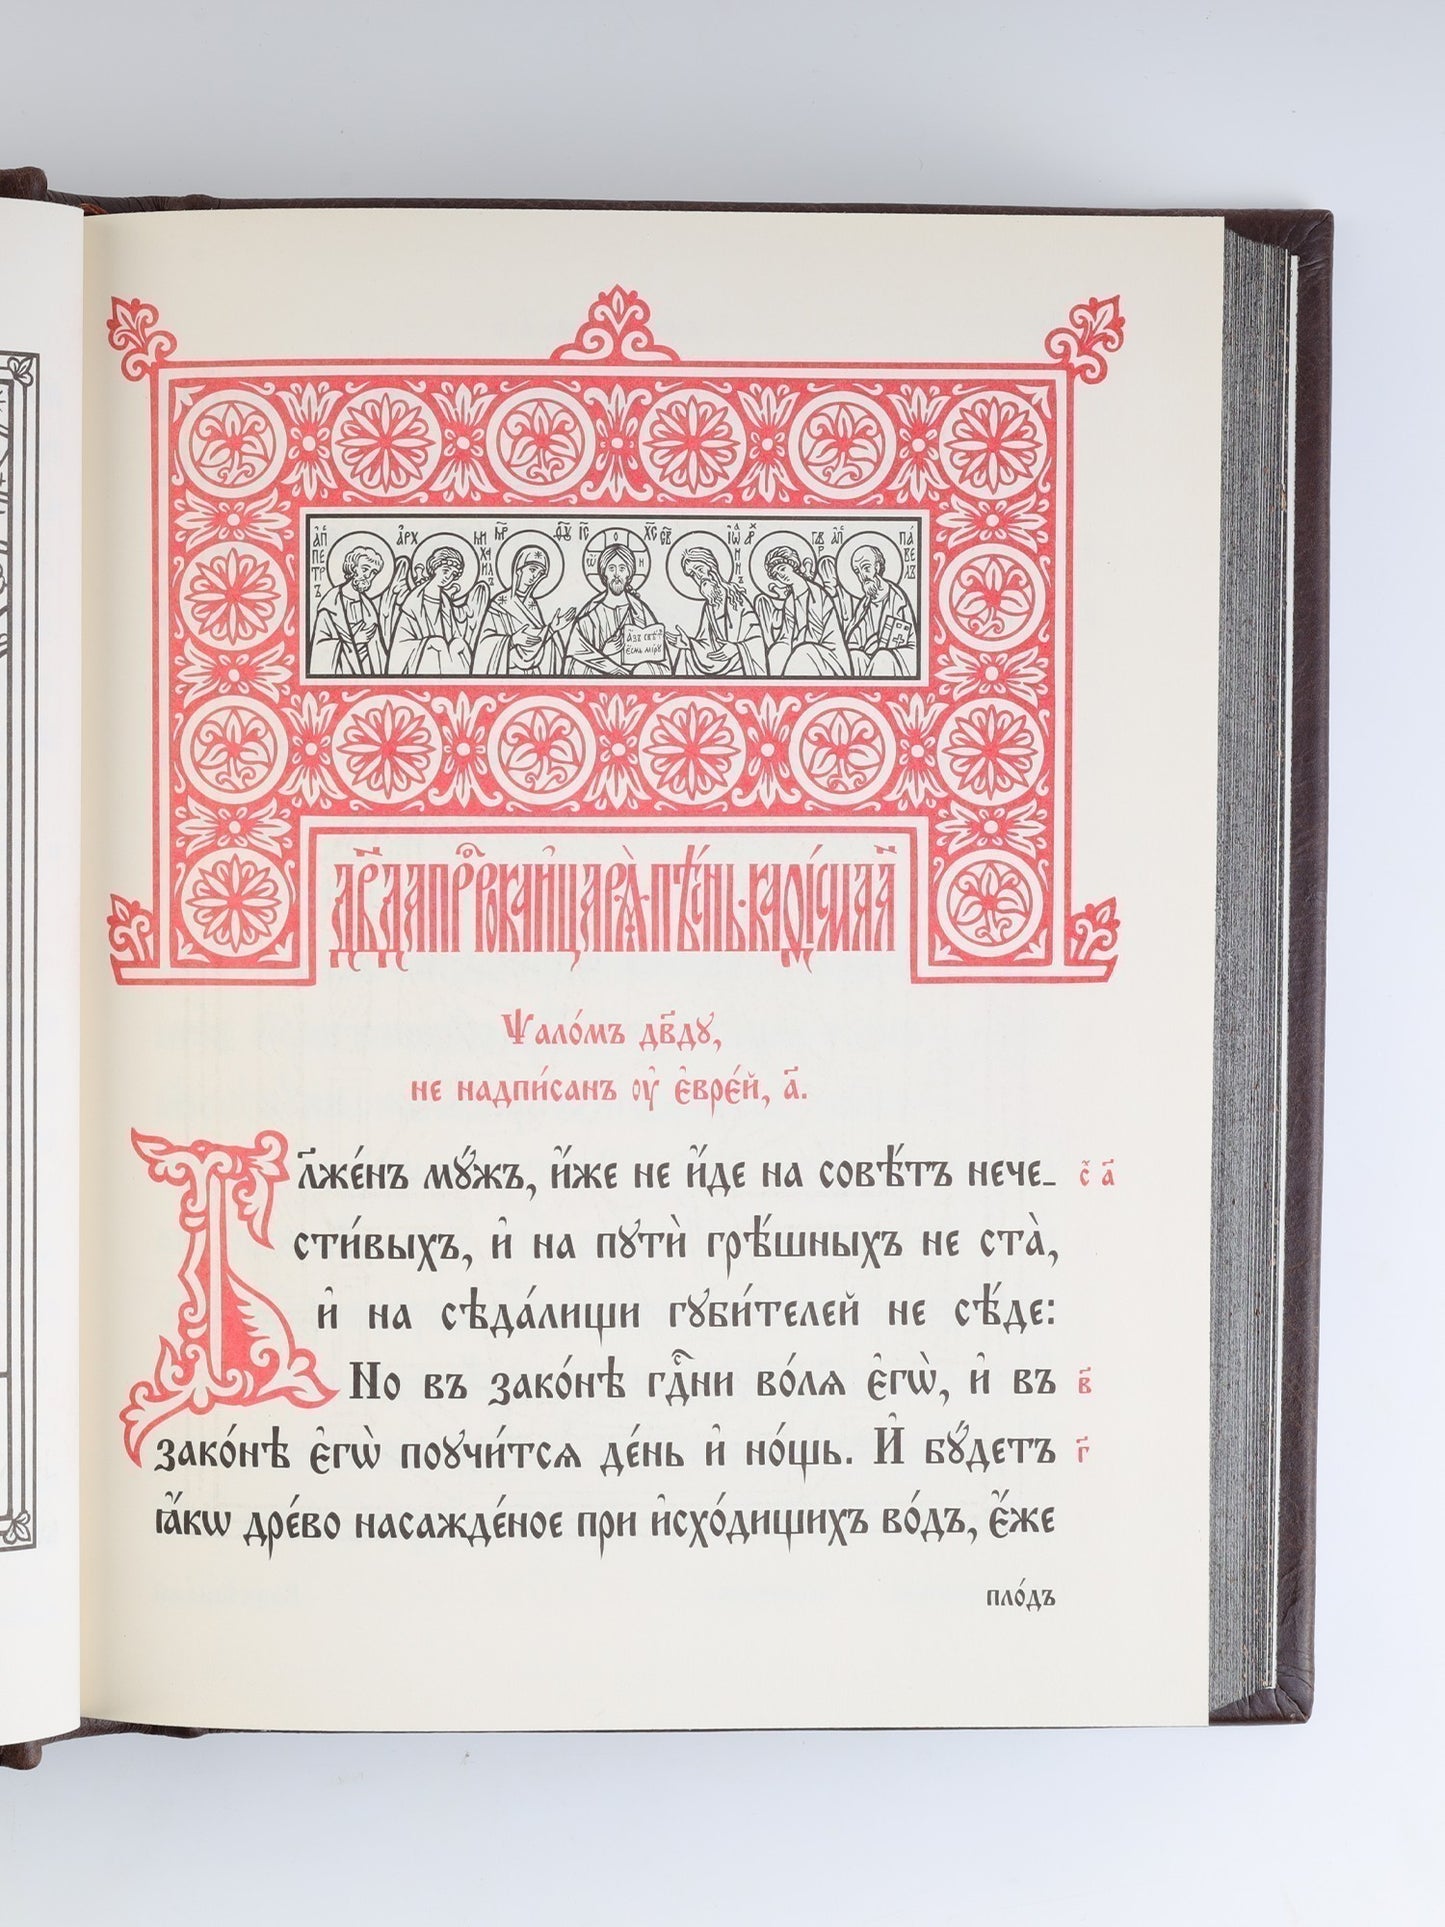 а҆́п петръ а҆рх михаилъ м҃р ѳ҃ѹ і҆с х҃с св і҆ѡаннъ а҆рх гавр а҆п павелъ
а҆́зъ свѣ́тъ
є҆́смь мі́ру
Дв҃да прⷪ҇рока и҆ царѧ̀ · пѣ́снь · каѳі́сма а҃
Ѱало́мъ дв҃ду,
не надпи́санъ ᲂу҆ є҆вре́й, а҃.
Бл҃же́нъ мꙋ́жъ, и҆́же не и҆́де на совѣ́тъ нече_ с҃ а҃
сти́выхъ, и҆ на пꙋтѝ грѣ́шныхъ не ста̀,
и҆ на сѣда́лищи гꙋби́телей не сѣ́де:
Но въ зако́нѣ гдⷭ҇ни во́лѧ є҆гѡ̀, и҆ въ в҃
зако́нѣ є҆гѡ̀ поꙋчи́тсѧ де́нь и҆ но́щь. И҆ бꙋ́детъ г҃
ꙗ҆́кѡ дре́во насажде́ное при и҆схо́дищихъ во́дъ, є҆́же
пло́дъ